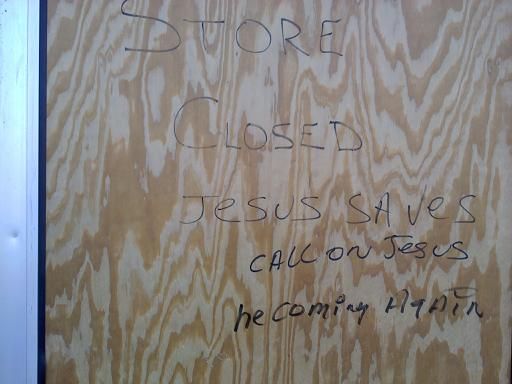 STORE
CLOSED
Jesus SAVes
CALL ON Jesus
he coming AgAiN